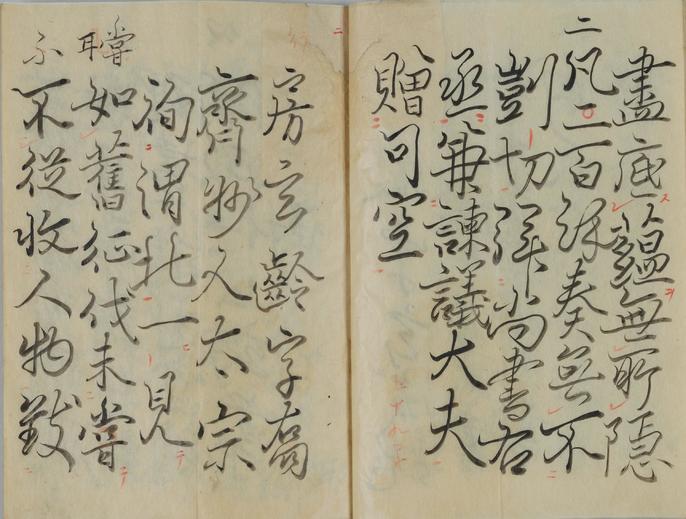 盡底蘊無所隱
二凡二百餘奏無不
剴切拜尚書右
丞兼諫議大夫
贈句空
房玄齡字喬
齊州人太宗
徇渭北一見
如舊征伐未嘗
不從收人物致